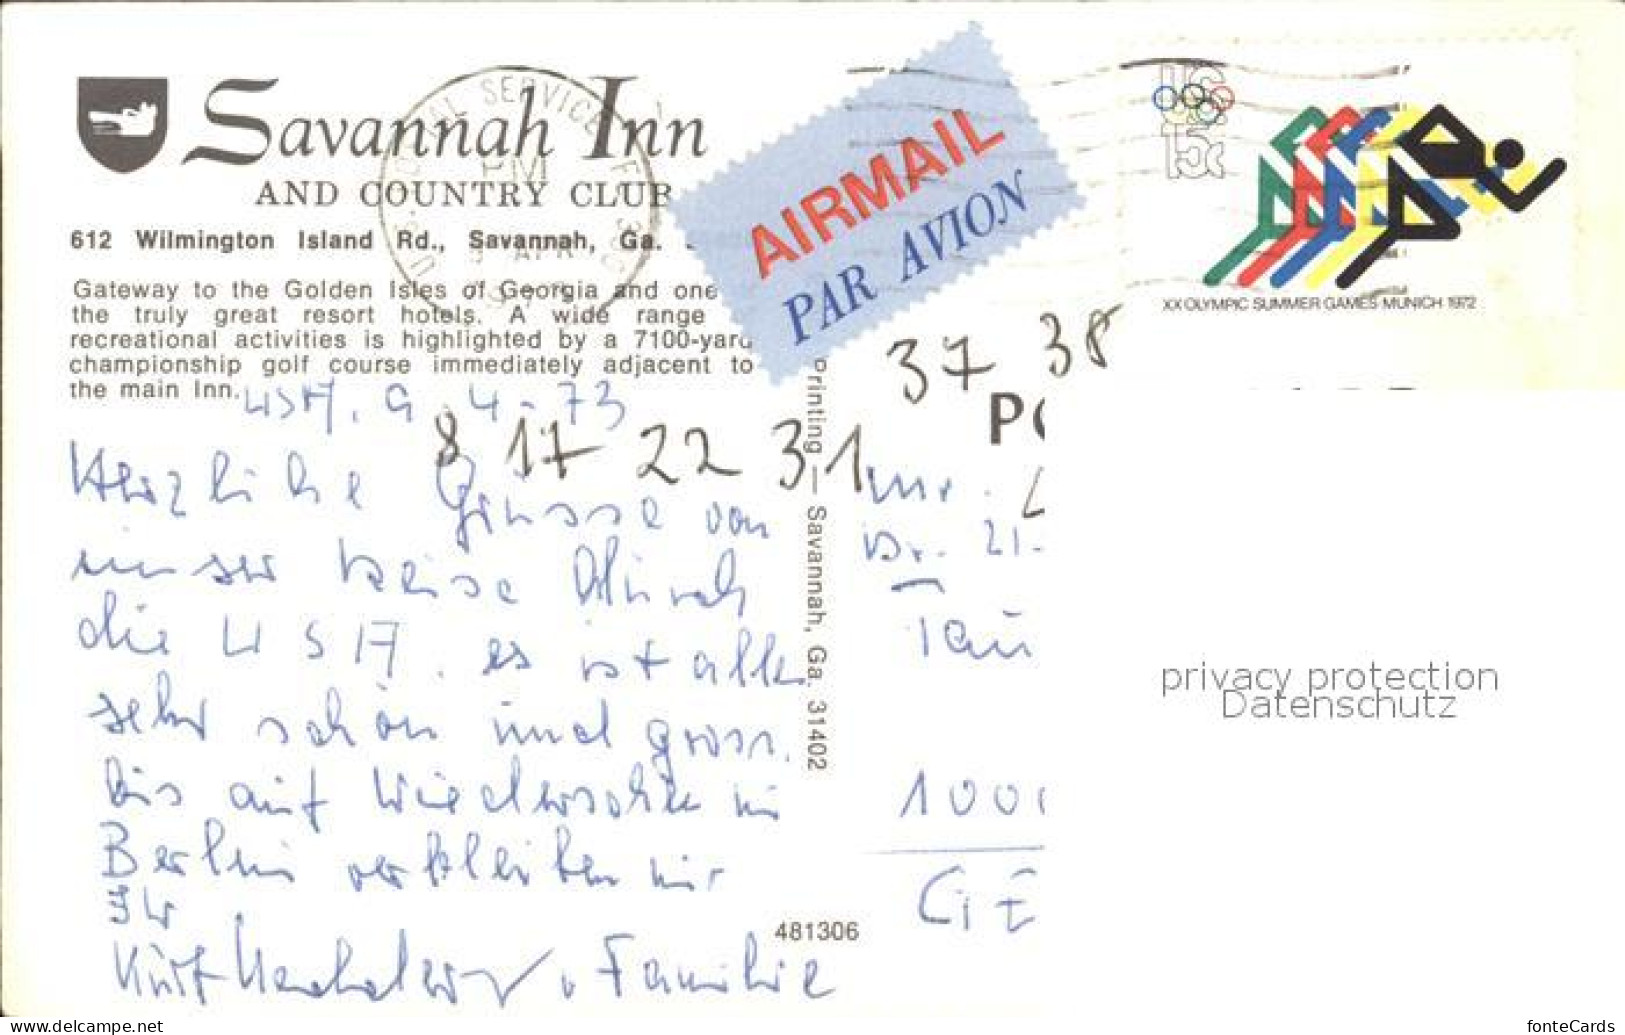 Savannah Inn
AND COUNTRY CLUB
612 Wilmington Island Rd., Savannah, Ga.
Gateway to the Golden Isles of Georgia and one
the truly great resort hotels. A wide range
recreational activities is highlighted by a 7100-yard
championship golf course immediately adjacent to
the main Inn.
POSTAL SERVICE
PM
APR
AIRMAIL
PAR AVION
US
15c
XX OLYMPIC SUMMER GAMES MUNICH 1972
37 38
8 17 22 31
USA. 9.4.73
Herzliche Grüsse von
unser Reise durch
die USA. es ist alles
sehr schön und gross.
bis auf Wiedersehen in
Berlin verbleiben wir
Ihr
Kurt u. Familie
Printing — Savannah, Ga. 31402
481306
PO
Mr.
Dr. 21-
Tau
1000
privacy protection
Datenschutz
www.delcampe.net
fonteCards